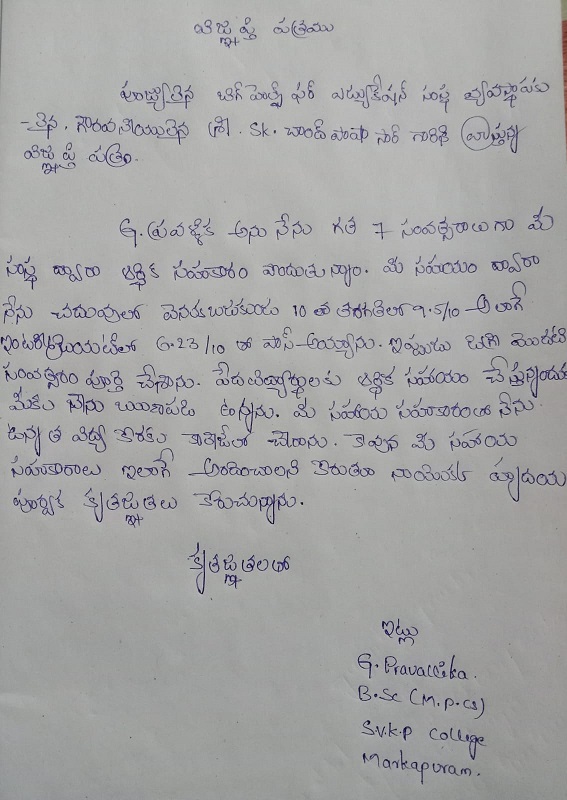 విజ్ఞప్తి పత్రము
పూజ్యులైన బిగ్ హెల్ప్ ఫర్ ఎడ్యుకేషన్ సంస్థ వ్యవస్థాపకు
-లైన, గౌరవనీయులైన శ్రీ. Sk. చాంద్ పాషా సార్ గారికి వ్రాస్తున్న
విజ్ఞప్తి పత్రం.
G. ప్రవళ్లిక అను నేను గత 7 సంవత్సరాలుగా మీ
సంస్థ ద్వారా ఆర్థిక సహకారం పొందుతున్నాం. మీ సహాయం ద్వారా
నేను చదువులో వెనుకబడకుండా 10 వ తరగతిలో 9.5/10 అలాగే
ఇంటర్మీడియట్‌లో 6.23/10 తో పాస్ అయ్యాను. ఇప్పుడు డిగ్రీ మొదటి
సంవత్సరం పూర్తి చేశాను. పేద విద్యార్థులకు ఆర్థిక సహాయం చేస్తున్నందుకు
మీకు నేను ఋణపడి ఉన్నాను. మీ సహాయ సహకారంతో నేను
ఉన్నత విద్య కొరకు కాలేజీలో చేరాను. కావున మీ సహాయ
సహకారాలు ఇలాగే అందించాలని కోరుతూ నాయొక్క హృదయ
పూర్వక కృతజ్ఞతలు కోరుచున్నాను.
కృతజ్ఞతలతో
ఇట్లు
G. Pravallika.
B.Sc (M.p.cs)
S.V.K.P College
Markapuram.